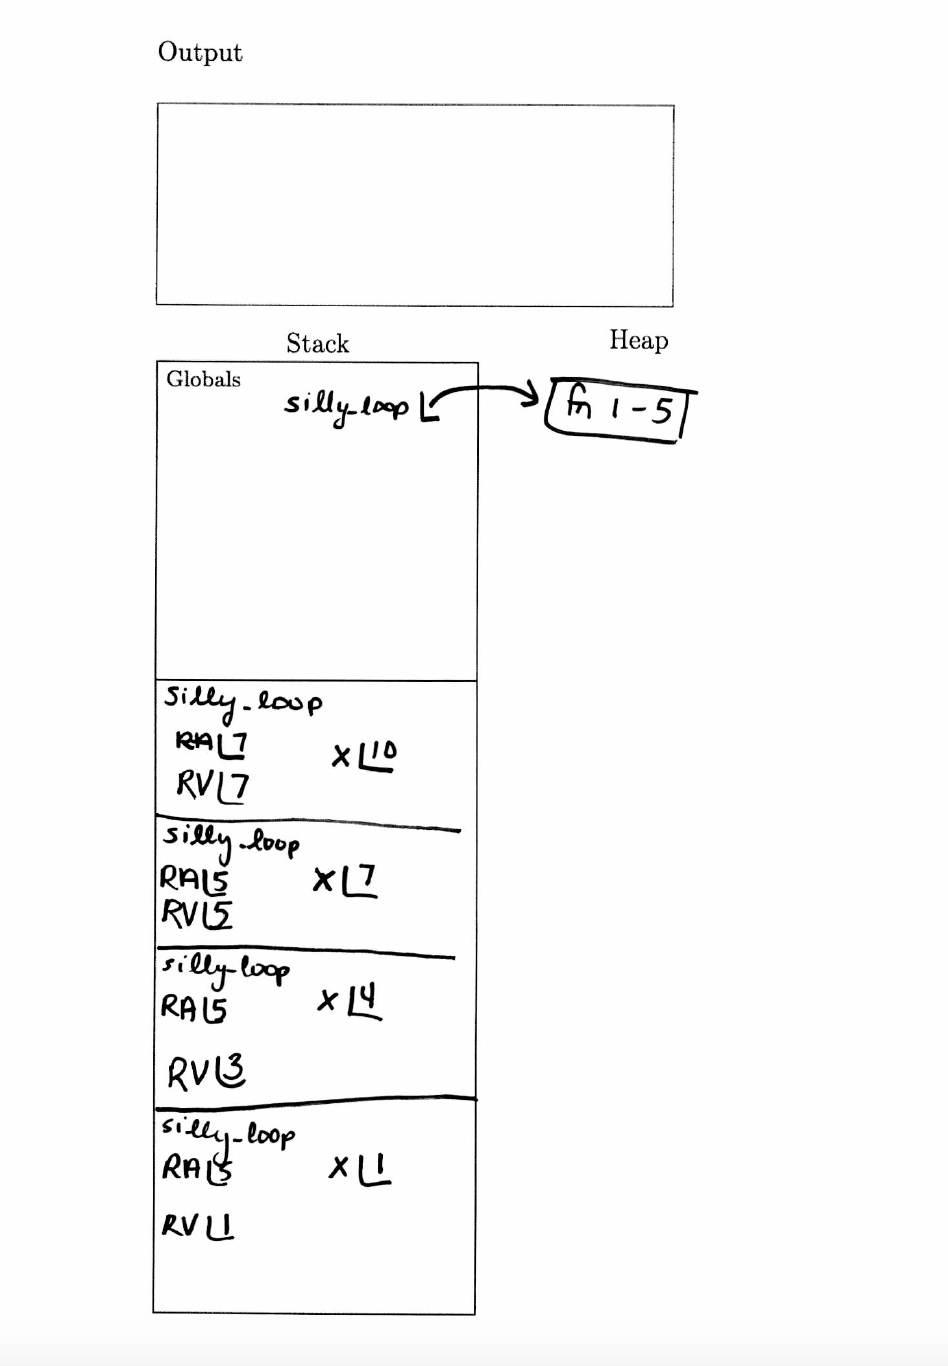 Output
Stack Heap
Globals
silly_loop fn 1-5
silly_loop
RA 7 x 10
RV 7
silly_loop
RA 5 x 7
RV 5
silly_loop
RA 5 x 4
RV 3
silly_loop
RA 5 x 1
RV 1